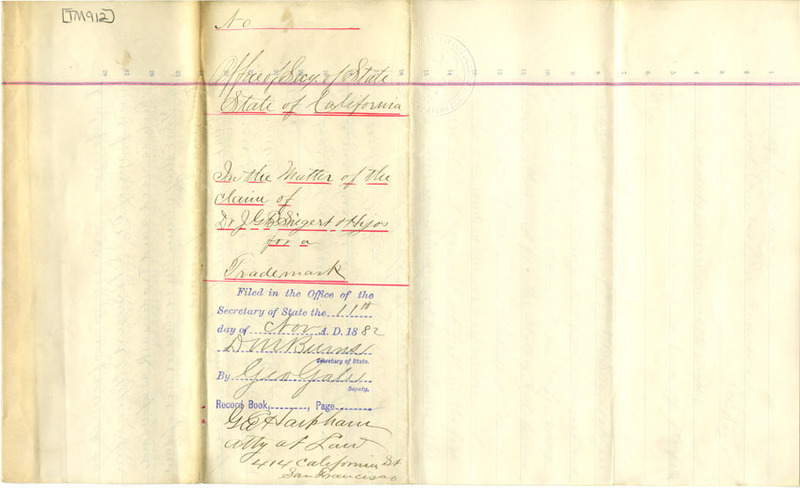 [TM912]
No
Office of Secy. of State
State of California
In the Matter of the
claim of
Dr J. G. B. Siegert & Hijos
for a
Trademark
Filed in the Office of the
Secretary of State the 11th
day of Nov A. D. 1882
D M Burns
Secretary of State.
By Geo
Deputy.
Record Book, , Page
Harpham
Atty at Law
414 California St
San Francisco